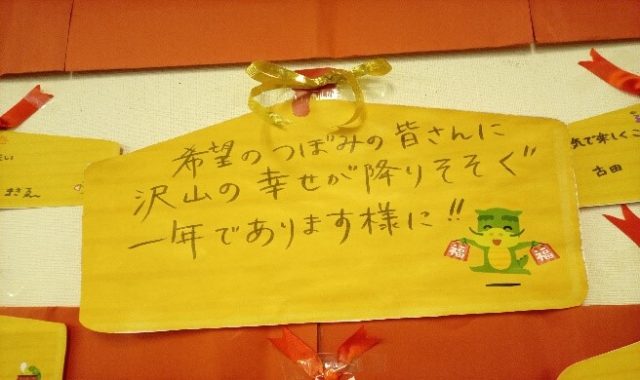 希望のつぼみの皆さんに
沢山の幸せが降りそそぐ
一年であります様に!!
福 福
気で楽しくこ
古田